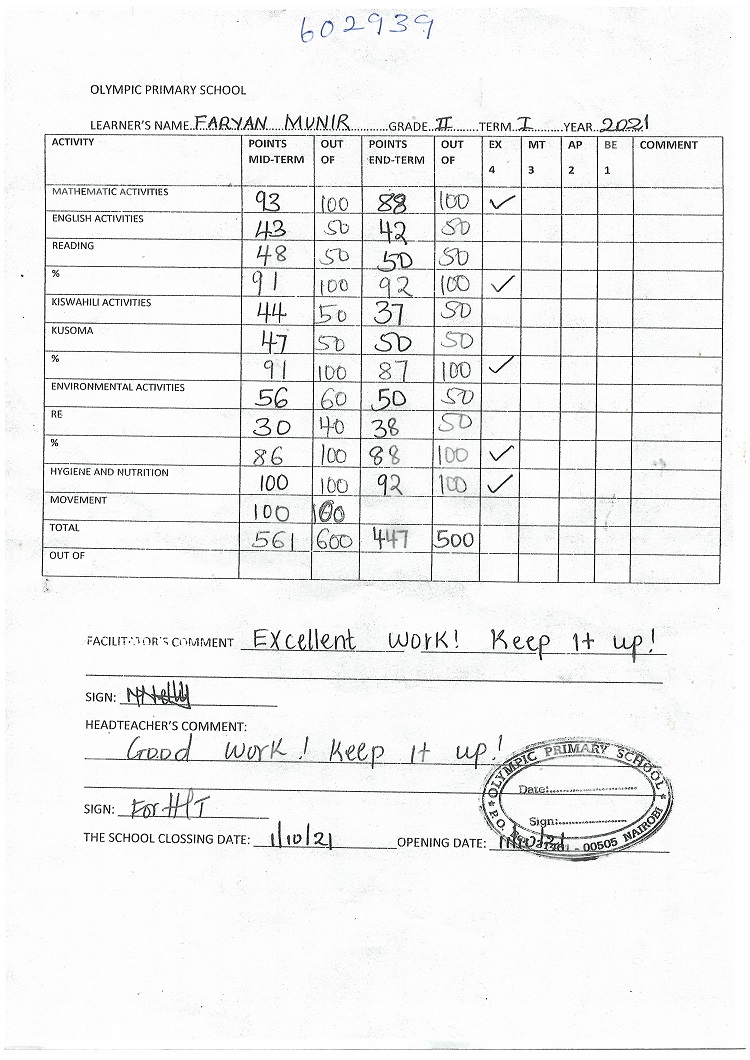 602939
OLYMPIC PRIMARY SCHOOL
LEARNER'S NAME..FARYAN MUNIR............GRADE..II........TERM..I........YEAR..2021
ACTIVITY POINTS MID-TERM OUT OF POINTS END-TERM OUT OF EX 4 MT 3 AP 2 BE 1 COMMENT
MATHEMATIC ACTIVITIES 93 100 88 100 ✓
ENGLISH ACTIVITIES 43 50 42 50
READING 48 50 50 50
% 91 100 92 100 ✓
KISWAHILI ACTIVITIES 44 50 37 50
KUSOMA 47 50 50 50
% 91 100 87 100 ✓
ENVIRONMENTAL ACTIVITIES 56 60 50 50
RE 30 40 38 50
% 86 100 88 100 ✓
HYGIENE AND NUTRITION 100 100 92 100 ✓
MOVEMENT 100 100
TOTAL 561 600 447 500
OUT OF
FACILITATOR'S COMMENT Excellent work! Keep it up!
SIGN:
HEADTEACHER'S COMMENT:
Good work! Keep it up!
SIGN: For H/T
THE SCHOOL CLOSSING DATE: 1/10/21 OPENING DATE:
OLYMPIC PRIMARY SCHOOL
Date:
Sign:
P.O. - 00505 NAIROBI